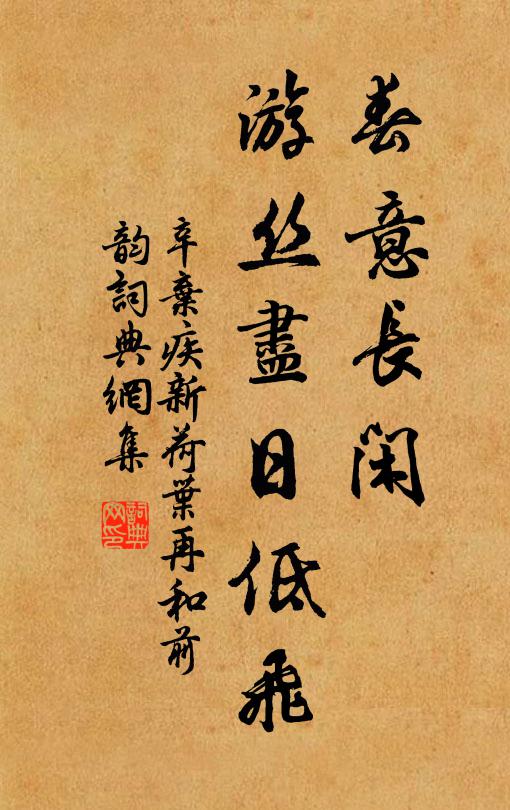 春意長闲
游丝盡日低飛
辛棄疾新荷葉再和前
韵詞典網集
詞典网印